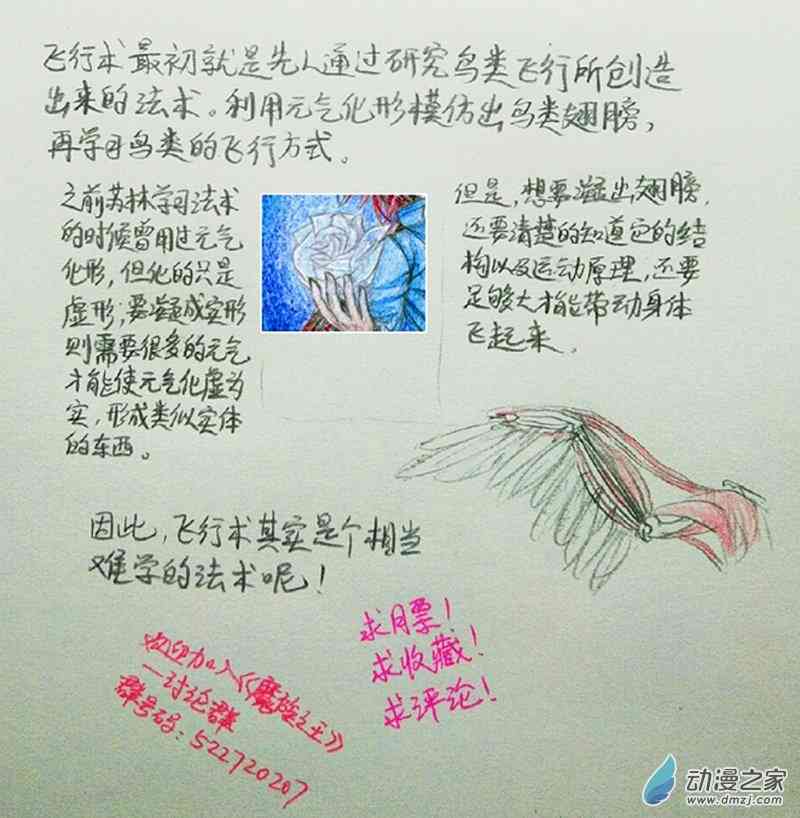 飞行术最初就是先人通过研究鸟类飞行所创造
出来的法术。利用元气化形模仿出鸟类翅膀，
再学习鸟类的飞行方式。
之前苏林学习法术
的时候曾用过元气
化形，但化的只是
虚形；要凝成实形
则需要很多的元气
才能使元气化虚为
实，形成类似实体
的东西。
但是，想要凝出翅膀，
还要清楚的知道它的结
构以及运动原理，还要
足够大才能带动身体
飞起来。
因此，飞行术其实是个相当
难学的法术呢！
求月票！
求收藏！
求评论！
欢迎加入《魔途之王》
—讨论群
群号码：522720207
动漫之家
www.dmzj.com